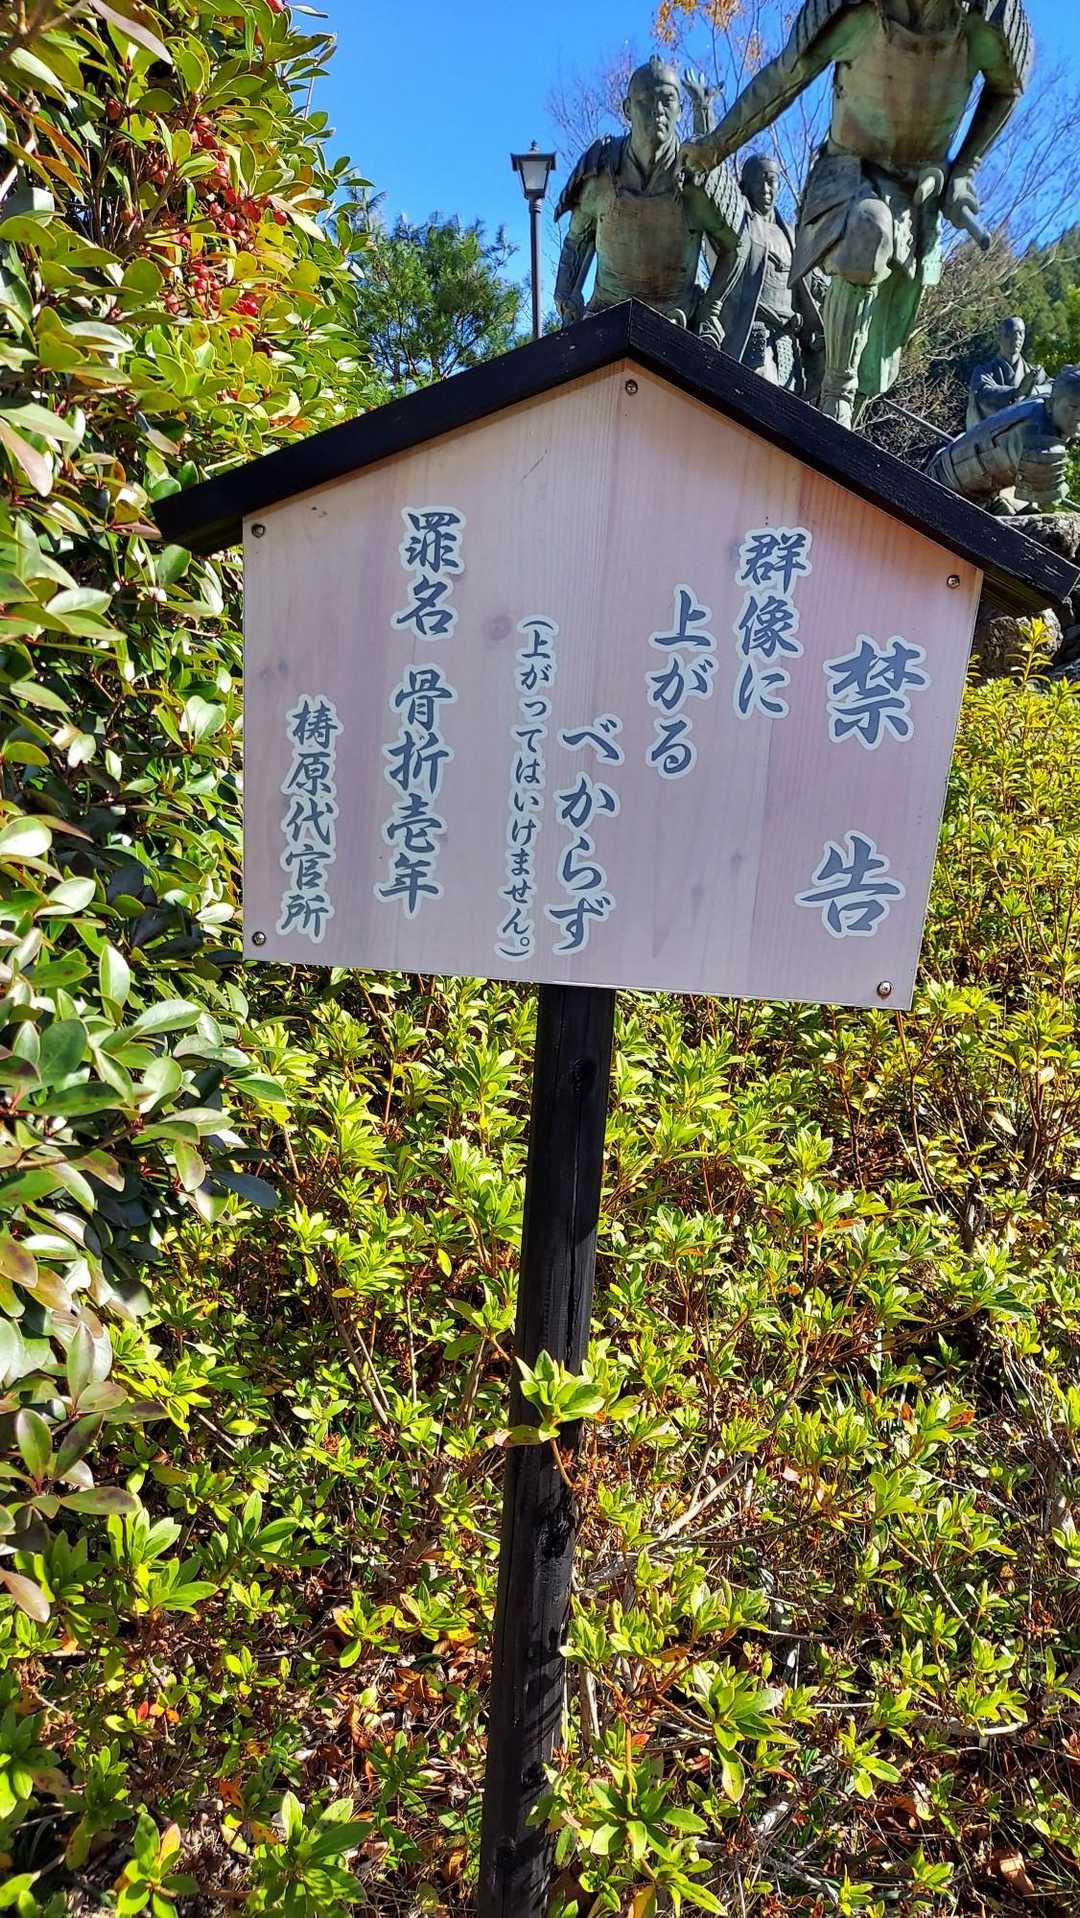 禁告
群像に
上がる
べからず
(上がってはいけません。)
罪名 骨折壱年
梼原代官所